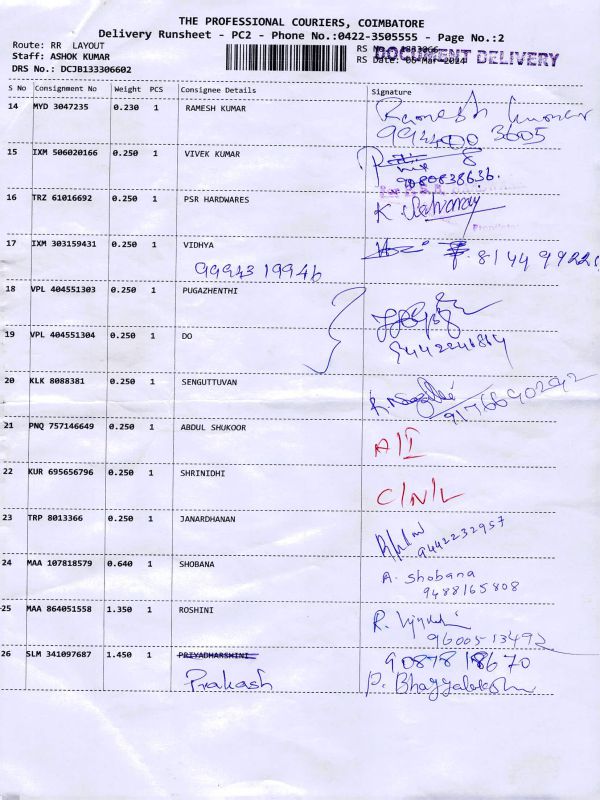 THE PROFESSIONAL COURIERS, COIMBATORE
Delivery Runsheet - PC2 - Phone No.:0422-3505555 - Page No.:2
Route: RR LAYOUT
RS No.: 1883066
DOCUMENT DELIVERY
Staff: ASHOK KUMAR
RS Date: 06-Mar-2024
DRS No.: DCJB133306602
S No Consignment No Weight PCS Consignee Details Signature
14 MYD 3047235 0.230 1 RAMESH KUMAR Ramesh Kumar
9944003605
15 IXM 506020166 0.250 1 VIVEK KUMAR
9080838636.
16 TRZ 61016692 0.250 1 PSR HARDWARES
17 IXM 303159431 0.250 1 VIDHYA
9994319946
18 VPL 404551303 0.250 1 PUGAZHENTHI
19 VPL 404551304 0.250 1 DO
20 KLK 8088381 0.250 1 SENGUTTUVAN
9176690292
21 PNQ 757146649 0.250 1 ABDUL SHUKOOR
A/I
22 KUR 695656796 0.250 1 SHRINIDHI
C/N/L
23 TRP 8013366 0.250 1 JANARDHANAN
9442232957
24 MAA 107818579 0.640 1 SHOBANA A. Shobana
9488165808
25 MAA 864051558 1.350 1 ROSHINI
9600513492
26 SLM 341097687 1.450 1 PRIYADHARSHINI 9087818670
Prakash P. Bhagyalakshmi